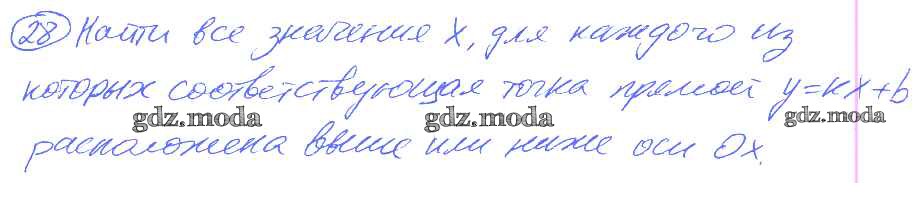 28 Найти все значения X, для каждого из
которых соответствующая точка прямой y=кX+b
gdz.moda gdz.moda gdz.moda
расположена выше или ниже оси Ox.